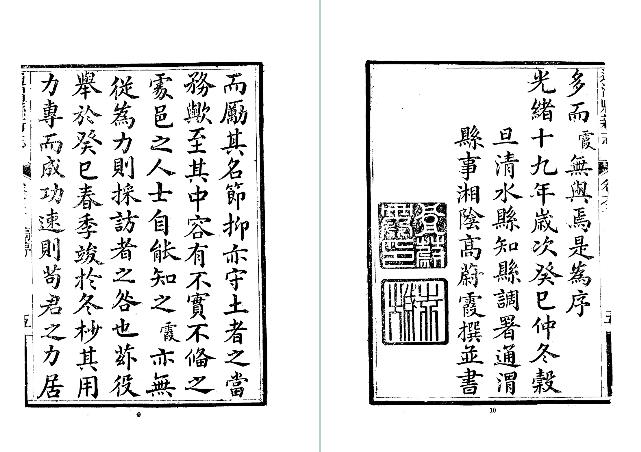 而勵其名節抑亦守土者之當
務歟至其中容有不實不俻之
處邑之人士自能知之霞亦無
從為力則採訪者之咎也茲役
舉於癸巳春季竣於冬杪其用
力專而成功速則苟君之力居
五
9
多而霞無與焉是為序
光緒十九年歲次癸巳仲冬穀
旦清水縣知縣調署通渭
縣事湘陰高蔚霞撰並書
五
10